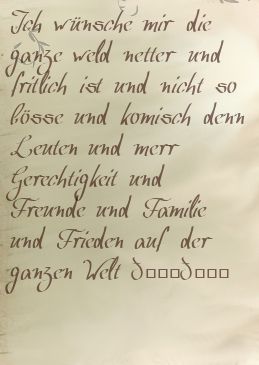 Ich wünsche mir die
ganze weld netter und
fritlich ist und nicht so
bösse und komisch denn
Leuten und merr
Gerechtigkeit und
Freunde und Familie
und Frieden auf der
ganzen Welt d□□□d□□□